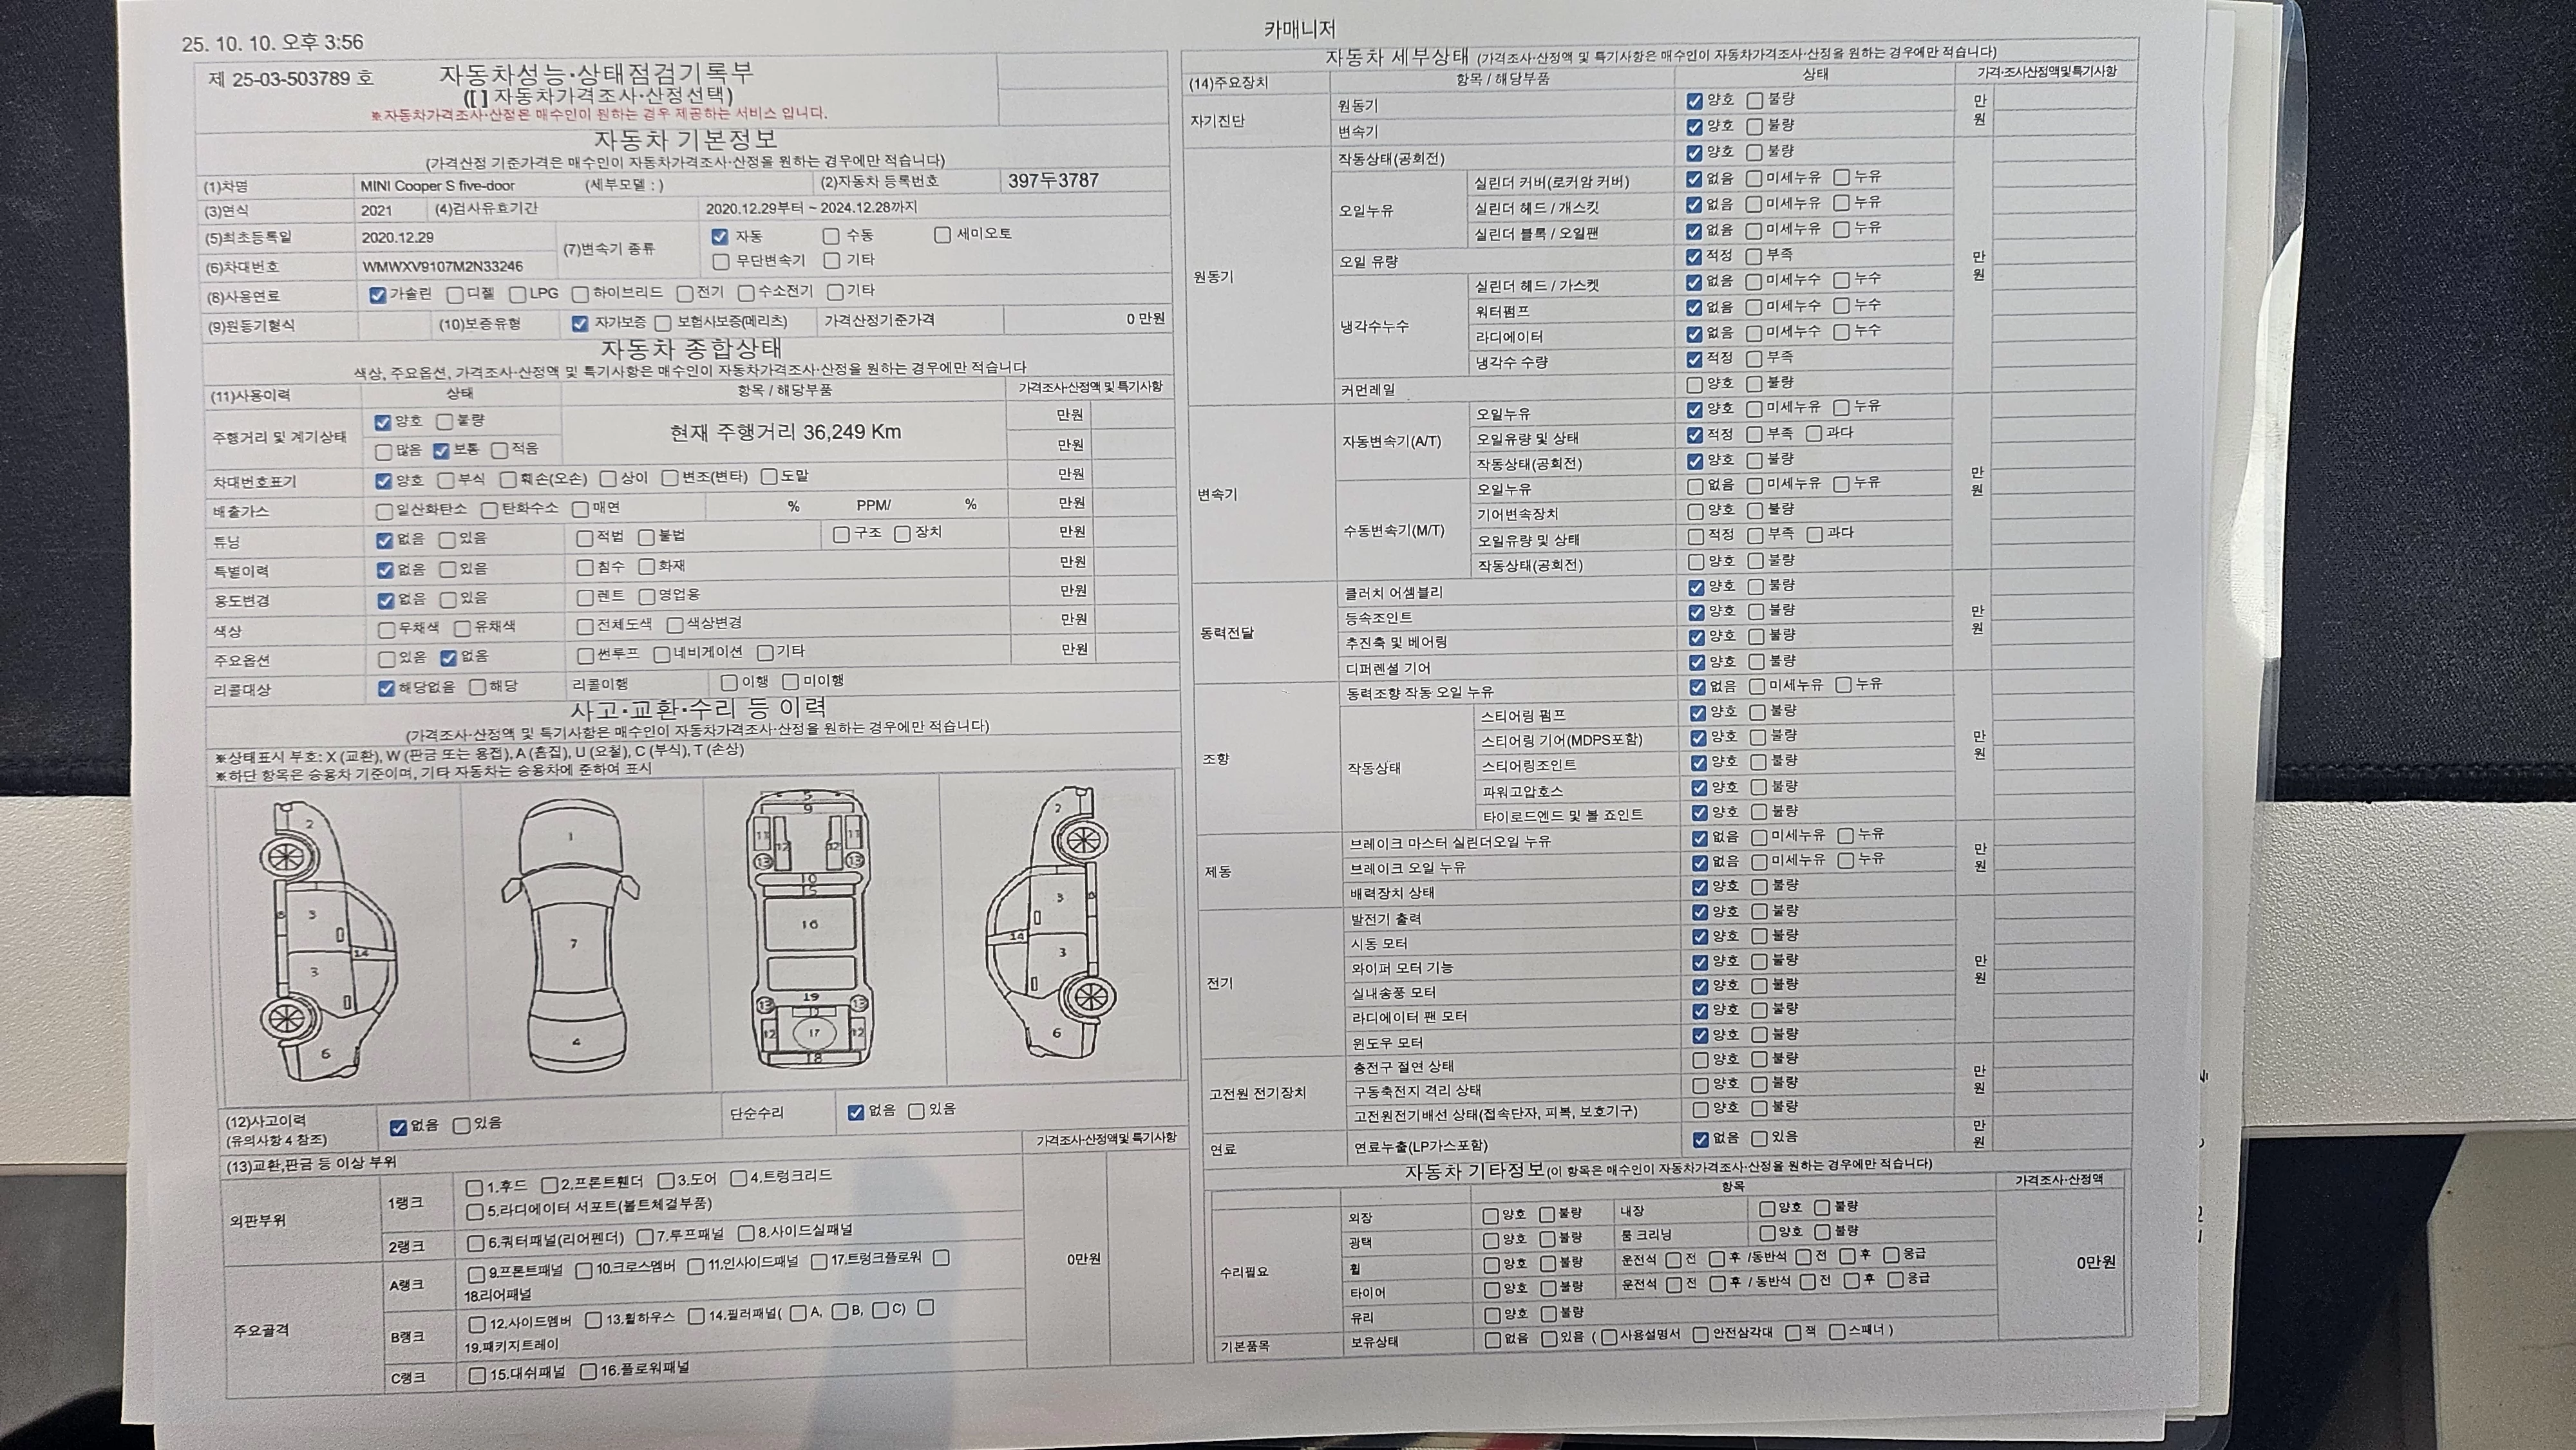 25. 10. 10. 오후 3:56
카매니저
제 25-03-503789 호
자동차성능·상태점검기록부
([ ] 자동차가격조사·산정선택)
※자동차가격조사·산정은 매수인이 원하는 경우 제공하는 서비스 입니다.
자동차 기본정보
(가격산정 기준가격은 매수인이 자동차가격조사·산정을 원하는 경우에만 적습니다)
(1)차명 MINI Cooper S five-door (세부모델 : ) (2)자동차 등록번호 397두3787
(3)연식 2021 (4)검사유효기간 2020.12.29부터 ~ 2024.12.28까지
(5)최초등록일 2020.12.29 (7)변속기 종류 자동 수동 세미오토
(6)차대번호 WMWXV9107M2N33246 무단변속기 기타
(8)사용연료 가솔린 디젤 LPG 하이브리드 전기 수소전기 기타
(9)원동기형식 (10)보증유형 자가보증 보험사보증(메리츠) 가격산정기준가격 0 만원
자동차 종합상태
색상, 주요옵션, 가격조사·산정액 및 특기사항은 매수인이 자동차가격조사·산정을 원하는 경우에만 적습니다
(11)사용이력 상태 항목 / 해당부품 가격조사·산정액 및 특기사항
주행거리 및 계기상태 양호 불량 현재 주행거리 36,249 Km 만원
많음 보통 적음 만원
차대번호표기 양호 부식 훼손(오손) 상이 변조(변타) 도말 만원
배출가스 일산화탄소 탄화수소 매연 % PPM/ % 만원
튜닝 없음 있음 적법 불법 구조 장치 만원
특별이력 없음 있음 침수 화재 만원
용도변경 없음 있음 렌트 영업용 만원
색상 무채색 유채색 전체도색 색상변경 만원
주요옵션 있음 없음 썬루프 네비게이션 기타 만원
리콜대상 해당없음 해당 리콜이행 이행 미이행
사고·교환·수리 등 이력
(가격조사·산정액 및 특기사항은 매수인이 자동차가격조사·산정을 원하는 경우에만 적습니다)
※상태표시 부호: X (교환), W (판금 또는 용접), A (흠집), U (요철), C (부식), T (손상)
※하단 항목은 승용차 기준이며, 기타 자동차는 승용차에 준하여 표시
2 3 14 3 6
1 7 4
9 11 11 12 12 13 13 10 15 16 19 13 13 12 17 12 18
2 3 14 3 6
(12)사고이력 없음 있음 단순수리 없음 있음
(유의사항 4 참조)
(13)교환,판금 등 이상 부위 가격조사·산정액및 특기사항
외판부위 1랭크 1.후드 2.프론트휀더 3.도어 4.트렁크리드
5.라디에이터 서포트(볼트체결부품)
2랭크 6.쿼터패널(리어펜더) 7.루프패널 8.사이드실패널
주요골격 A랭크 9.프론트패널 10.크로스멤버 11.인사이드패널 17.트렁크플로워
18.리어패널
0만원
B랭크 12.사이드멤버 13.휠하우스 14.필러패널( A, B, C)
19.패키지트레이
C랭크 15.대쉬패널 16.플로워패널
자동차 세부상태 (가격조사·산정액 및 특기사항은 매수인이 자동차가격조사·산정을 원하는 경우에만 적습니다)
(14)주요장치 항목 / 해당부품 상태 가격·조사산정액및특기사항
자기진단 원동기 양호 불량 만원
변속기 양호 불량
원동기 작동상태(공회전) 양호 불량 만원
오일누유 실린더 커버(로커암 커버) 없음 미세누유 누유
실린더 헤드 / 개스킷 없음 미세누유 누유
실린더 블록 / 오일팬 없음 미세누유 누유
오일 유량 적정 부족
냉각수누수 실린더 헤드 / 가스켓 없음 미세누수 누수
워터펌프 없음 미세누수 누수
라디에이터 없음 미세누수 누수
냉각수 수량 적정 부족
커먼레일 양호 불량
변속기 자동변속기(A/T) 오일누유 양호 미세누유 누유 만원
오일유량 및 상태 적정 부족 과다
작동상태(공회전) 양호 불량
수동변속기(M/T) 오일누유 없음 미세누유 누유
기어변속장치 양호 불량
오일유량 및 상태 적정 부족 과다
작동상태(공회전) 양호 불량
동력전달 클러치 어셈블리 양호 불량 만원
등속조인트 양호 불량
추진축 및 베어링 양호 불량
디퍼렌셜 기어 양호 불량
조향 동력조향 작동 오일 누유 없음 미세누유 누유 만원
작동상태 스티어링 펌프 양호 불량
스티어링 기어(MDPS포함) 양호 불량
스티어링조인트 양호 불량
파워고압호스 양호 불량
타이로드엔드 및 볼 죠인트 양호 불량
제동 브레이크 마스터 실린더오일 누유 없음 미세누유 누유 만원
브레이크 오일 누유 없음 미세누유 누유
배력장치 상태 양호 불량
전기 발전기 출력 양호 불량 만원
시동 모터 양호 불량
와이퍼 모터 기능 양호 불량
실내송풍 모터 양호 불량
라디에이터 팬 모터 양호 불량
윈도우 모터 양호 불량
고전원 전기장치 충전구 절연 상태 양호 불량 만원
구동축전지 격리 상태 양호 불량
고전원전기배선 상태(접속단자, 피복, 보호기구) 양호 불량
연료 연료누출(LP가스포함) 없음 있음 만원
자동차 기타정보(이 항목은 매수인이 자동차가격조사·산정을 원하는 경우에만 적습니다)
항목 가격조사·산정액
수리필요 외장 양호 불량 내장 양호 불량
광택 양호 불량 룸 크리닝 양호 불량
휠 양호 불량 운전석 전 후 /동반석 전 후 응급 0만원
타이어 양호 불량 운전석 전 후 / 동반석 전 후 응급
유리 양호 불량
기본품목 보유상태 없음 있음 ( 사용설명서 안전삼각대 잭 스패너 )